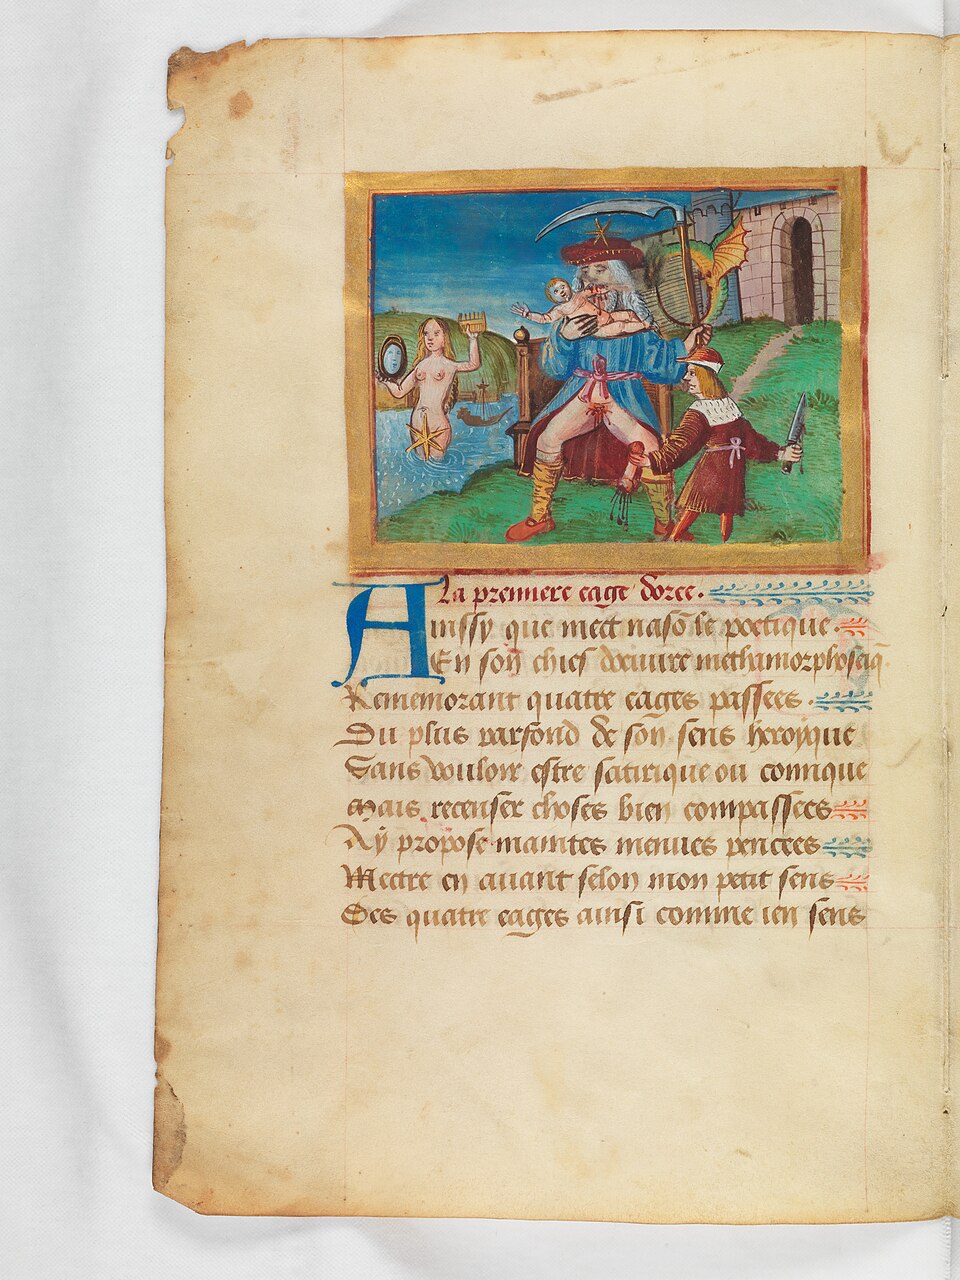 La premiere eage doree.
Ainssy que mect nasō le poetique
En son chief dœuvre methamorphoseiq
Rememorant quatre eages passees
Du plus parfond de son sens heroyque
Sans vouloir estre satirique ou comique
Mais recenser choses bien compassees
Ay propose maintes menues pencees
Mectre en avant selon mon petit sens
Des quatre eages ainsi comme ien sens